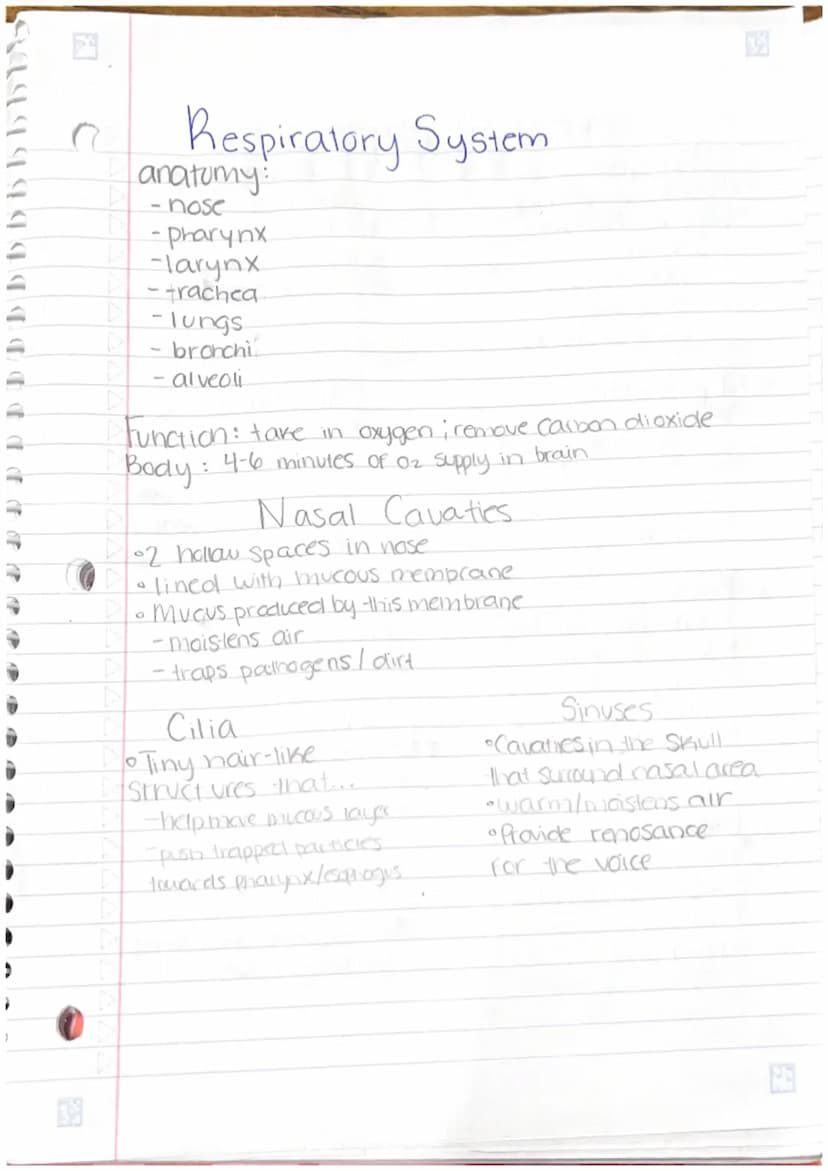 Respiratory System
anatomy:
- nose
- pharynx
- larynx
- trachea
- lungs
- bronchi
- alveoli
Function: take in oxygen; remove carbon dioxide
Body: 4-6 minutes of O2 supply in brain
Nasal Cavaties
• 2 hollow spaces in nose
• lined with mucous membrane
• Mucus produced by this membrane
- moistens air
- traps pathogens/dirt
Cilia
• Tiny hair-like
structures that...
- help move mucous layer
- push trapped particles
towards pharynx/esophogus
Sinuses
• Cavaties in the skull
that surround nasal area
• warm/moistens air
• Provide renosance
for the voice